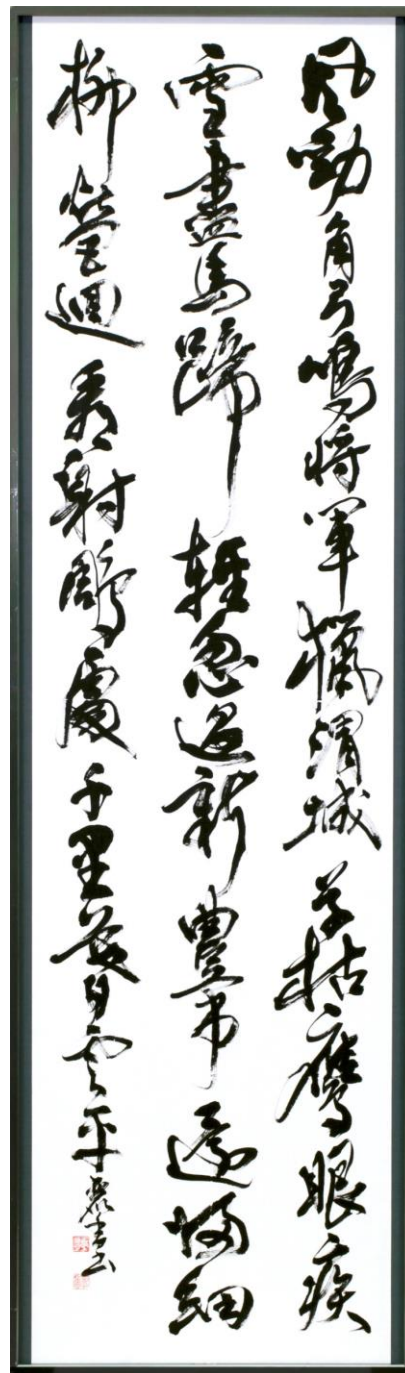 風勁角弓鳴将軍猟渭城草枯鷹眼疾
雪盡馬蹄軽忽過新豊市還帰細
柳営迴看射鵰處千里暮雲平